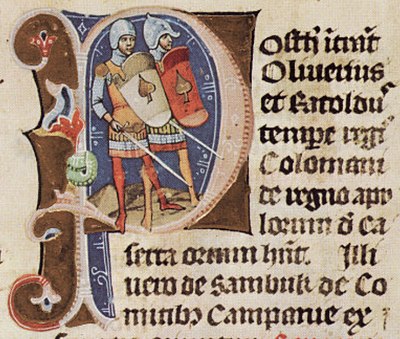 Post
Oliuerius
et Ratoldu᷒
temꝑe regꝭ
Colomani
de regno apu
lorum d̄ ca
serta ortum hn̄t. Illi
uero de Sambuk de Co
mitibꝫ Campanie ex